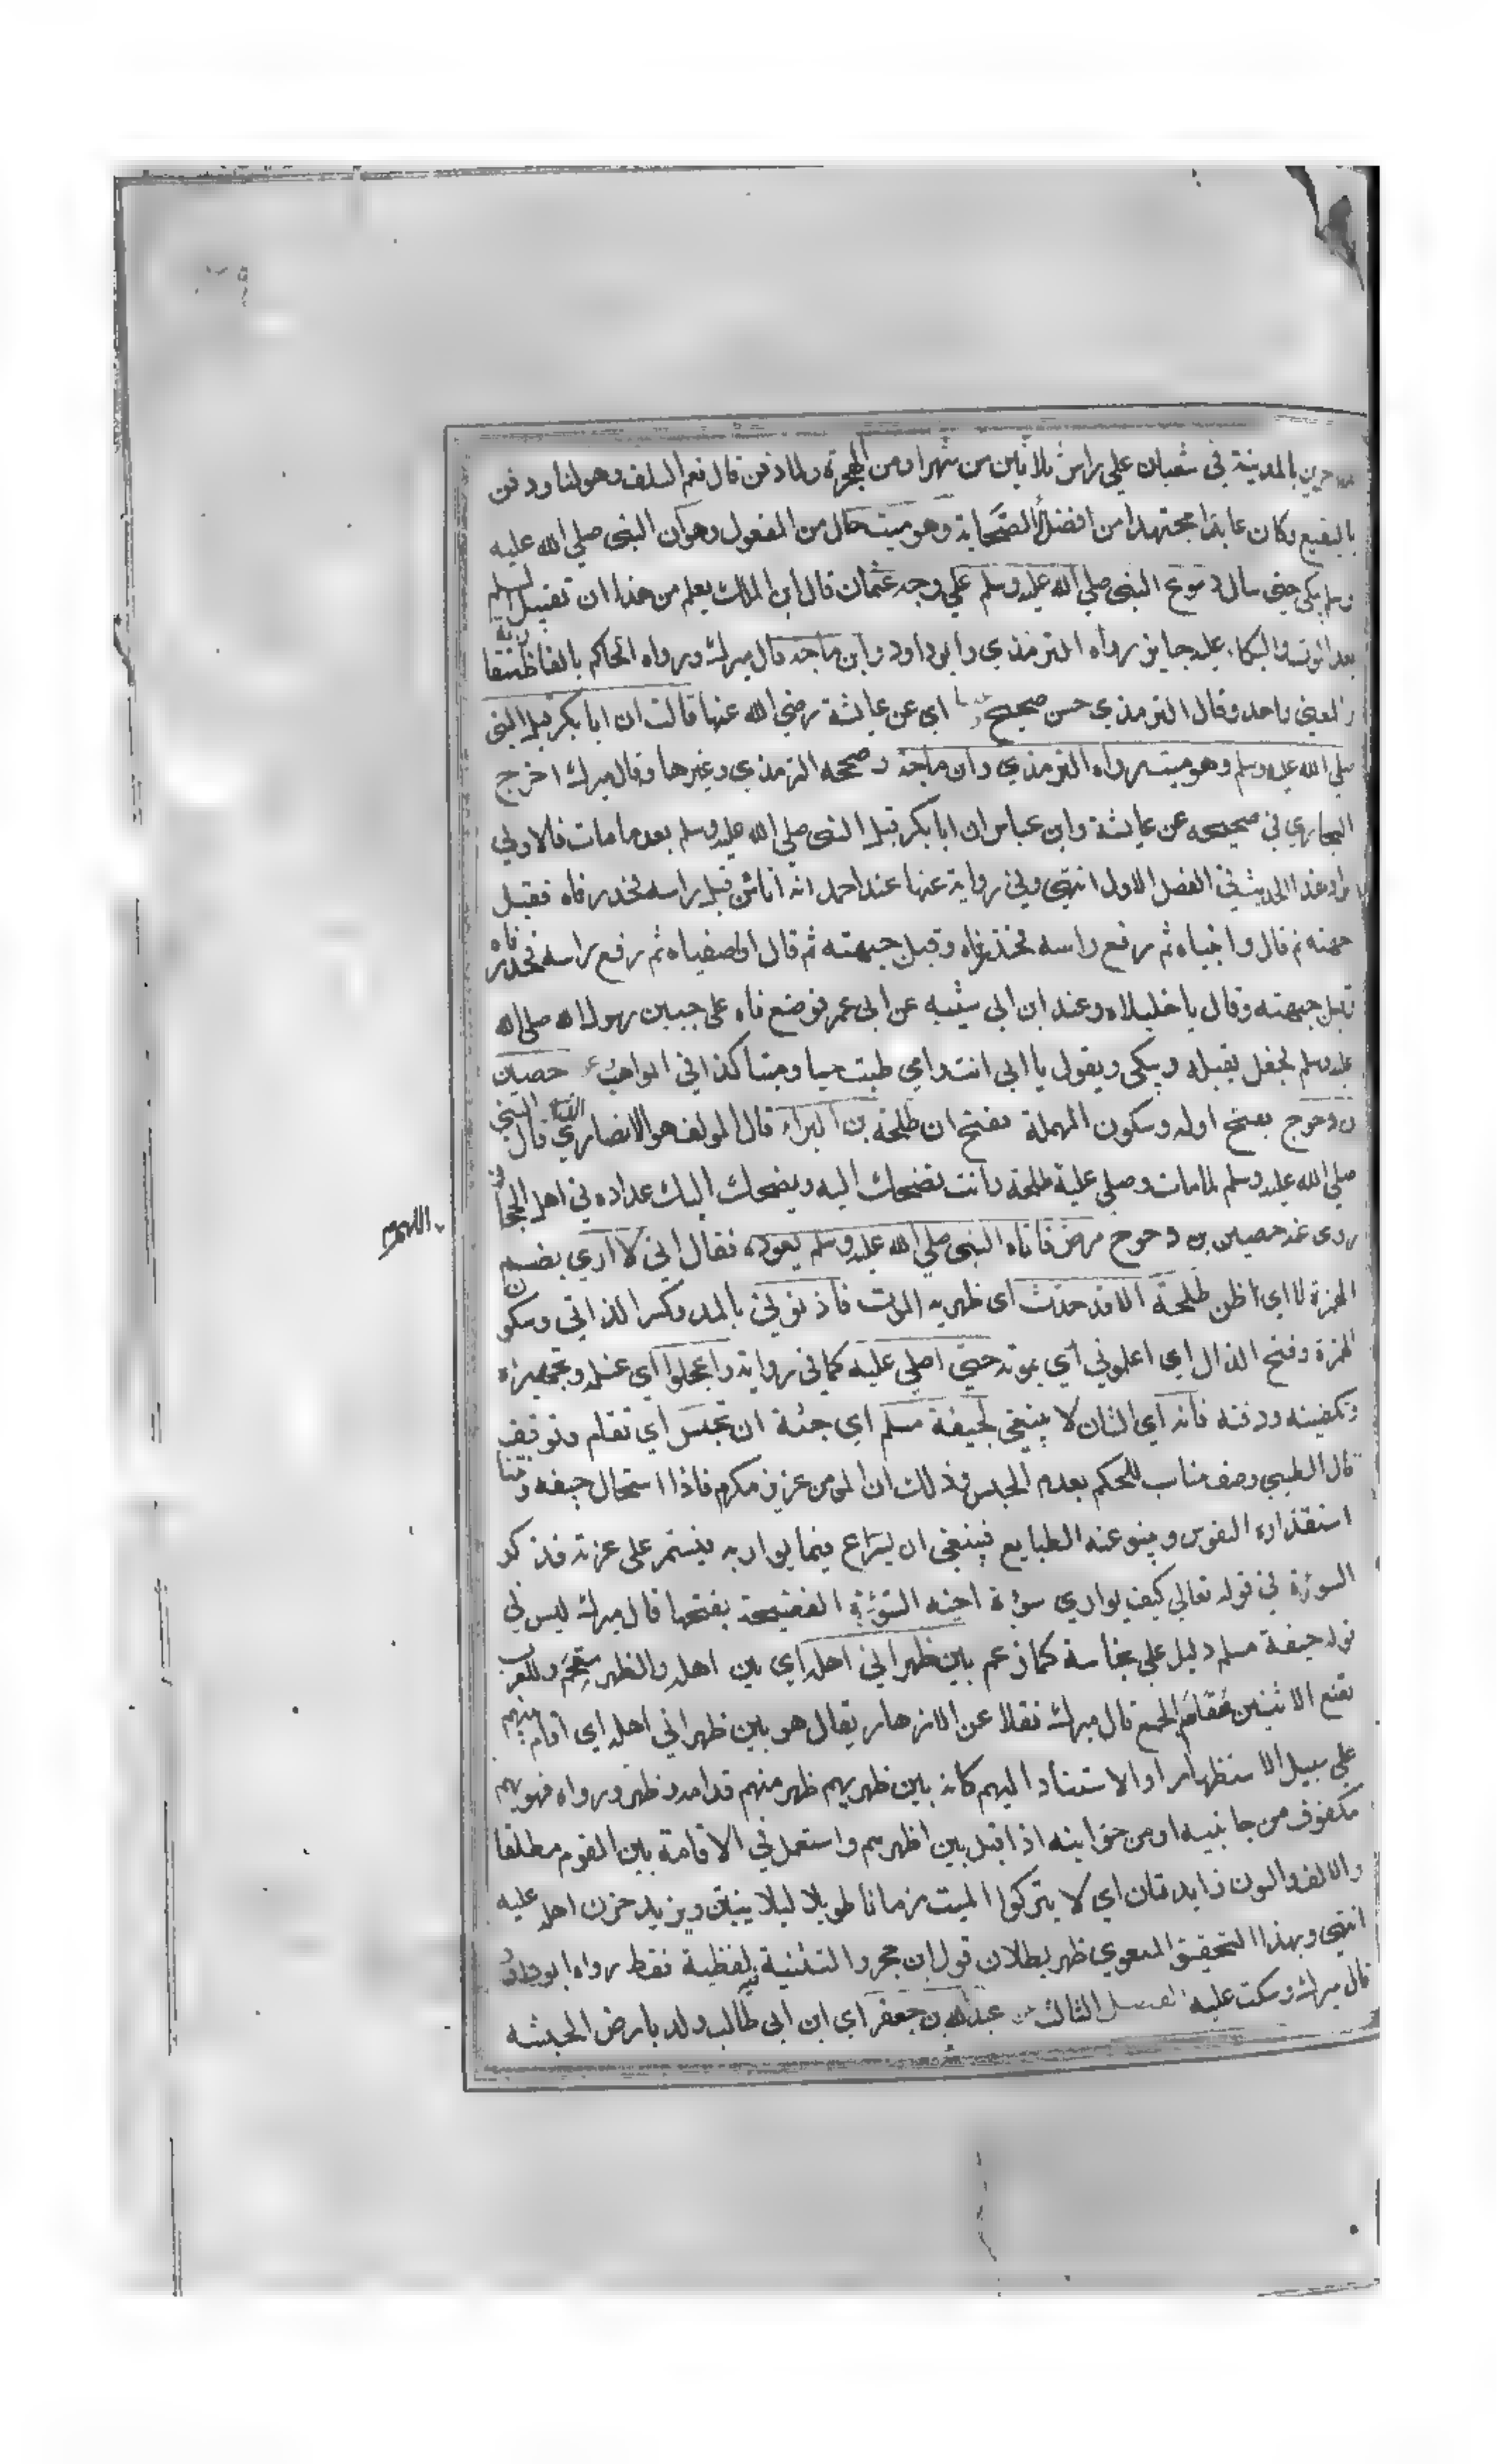 جرين بالمدينة في شعبان علي راس ثلاثين من شهرا ومن الهجرة ولما دفن قال نعم السلف وهو لنا ودفن
بالبقيع وكان عابدا مجتهدا من افضل الصحابة وهو ميت حال من المفعول وهو ان النبي صلي الله عليه
وسلم بكى حتى سال دموع النبي صلي الله عليه وسلم علي وجه عثمان قال ابن الملك يعلم من هذا ان تقبيل المسلم
بعد الموت والبكاء عليه جايز رواه الترمذي وابوداود وابن ماجه قال ميرك ورواه الحاكم بالفاظ متقاربة
والمعني واحد وقال الترمذي حسن صحيح اي عن عايشة رضي الله عنها قالت ان ابا بكر قبل النبي
صلي الله عليه وسلم وهو ميت رواه الترمذي وابن ماجة وصححه الترمذي وغيرها وقال ميرك اخرج
البخاري في صحيحه عن عايشة وابن عباس ان ابا بكر قبل النبي صلي الله عليه وسلم بعد ما مات فالاولي
ايراد هذا الحديث في الفصل الاول انتهي وفي رواية عنها عند احمد انه اتاه من قبل راسه فحدر فاه فقبل
جبهته ثم قال وا نبياه ثم رفع راسه فحدر فاه وقبل جبهته ثم قال واصفياه ثم رفع راسه فحدر فاه
قبل جبهته وقال يا خليلاه وعند ابن ابي شيبه عن ابي عمر فوضع فاه على جبين رسول الله صلي الله
عليه وسلم فجعل يقبله ويبكي ويقول يا ابي انت وامي طبت حيا وميتا كذا في المواهب حصين
بن دحوج بفتح اوله وسكون المهملة بفتح ان طلحة بن البراء قال المولف هو الانصاري قال النبي
صلي الله عليه وسلم لما مات وصلي علية طلحة وانت تضحك اليه ويضحك اليك عداده في اهل الحجاز
روى عنه حصين بن دحوح مرض فاتاه النبي صلي الله عليه وسلم يعوده فقال اني لا اري بضم
الهمزة لا اي اظن طلحة الا قد حدث اى ظهر به الموت فاذنوني بالمد وكسر الذال وسكون
الهمزة وفتح الذال اي اعلموني اي بموته حتي اصلي عليه كما في رواية وعجلوا اي غسله وتجهيزه
وتكفينه ودفنه فانه اي الشان لا ينبغي لجيفة مسلم اي جثة ان تحبس اي تقام وتوقف
قال الطيبي وصف مناسب للحكم بعدم الحبس وذلك ان المومن عزيز مكرم فاذا استحال جيفه ونتنا
استقذره النفوس وينبو عنه الطبايع فينبغي ان يسراع فيما يواريه فيستمر على عزته فذكر
السوءة في قوله تعالي كيف يواري سوءة اخيه السوءة الفضيحة بفتحها قال ميرك ليس في
قوله جيفة مسلم دليل علي نجاسة كما زعم بين ظهراني اهله اي بين اهله والظهر مقحم والعرب
تضع الاثنين مقام الجمع قال ميرك نقلا عن الازهار يقال هو بين ظهراني اهله اي اقام بينهم
علي سبيل الاستظهار او الاستناد اليهم كانه بين ظهريهم ظهر منهم قدامه وظهر وراه فهو بهم
مكفوف من جانبيه او من جوانبه اذا قيل بين اظهرهم واستعمل في الاقامة بين القوم مطلقا
والالف والنون زايدتان اي لا يتركوا الميت زمانا طويلا ليلا ينتن ويزيد حزن اهله عليه
انتهي وبهذا التحقيق المعنوي ظهر بطلان قول ابن حجر والتثنية فيه لفظية فقط رواه ابوداود
قال ميرك وسكت عليه الفصل الثالث عن عبد الله بن جعفر اي ابن ابي طالب ولد بارض الحبشه
اللهم